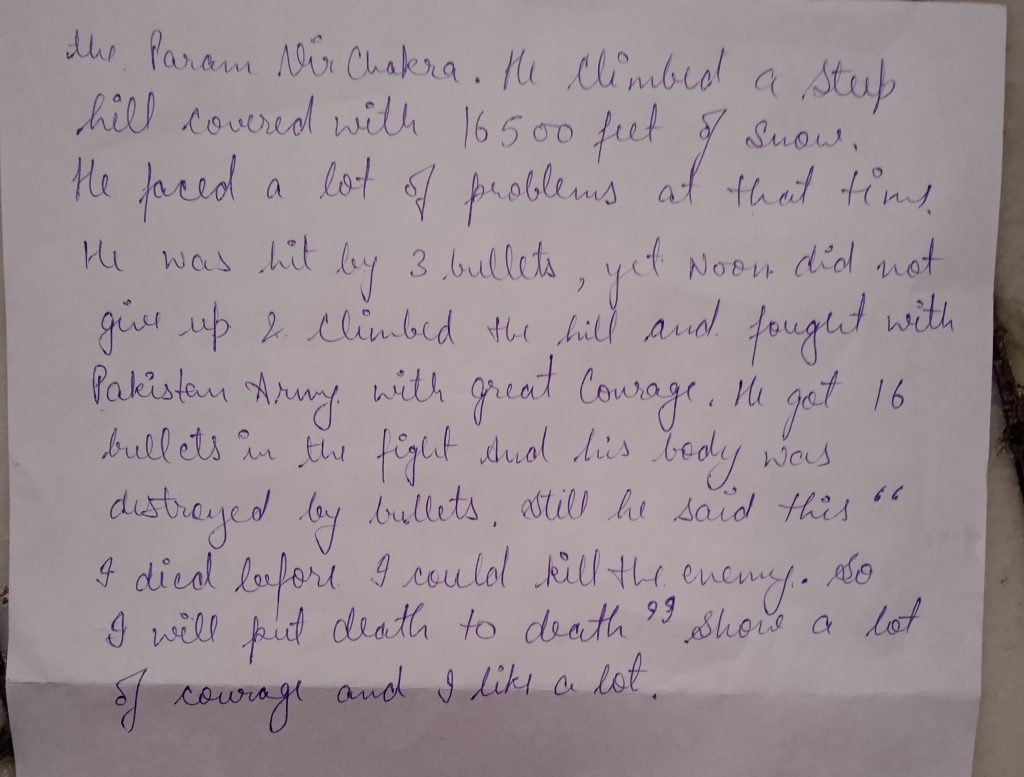 the Param Vir Chakra. He Climbed a steep
hill covered with 16500 feet of snow.
He faced a lot of problems at that time.
He was hit by 3 bullets, yet Noon did not
give up & climbed the hill and fought with
Pakistan Army with great Courage. He got 16
bullets in the fight and his body was
distrayed by bullets. Still he said this “
I died before I could kill the enemy. So
I will put death to death ” show a lot
of courage and I like a lot.